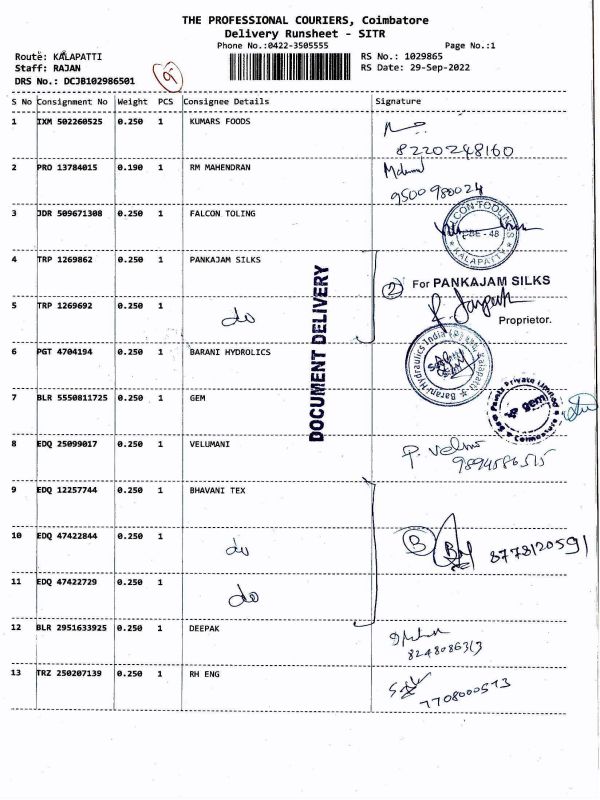 THE PROFESSIONAL COURIERS, Coimbatore
Delivery Runsheet - SITR
Phone No.:0422-3505555 Page No.:1
Route: KALAPATTI RS No.: 1029865
Staff: RAJAN RS Date: 29-Sep-2022
DRS No.: DCJB102986501
S No Consignment No Weight PCS Consignee Details Signature
1 IXM 502260525 0.250 1 KUMARS FOODS
8220248160
2 PRO 13784015 0.190 1 RM MAHENDRAN
9500980024
3 JDR 509671308 0.250 1 FALCON TOLING
FALCON TOOLINGS CBE - 48 KALAPATTI
4 TRP 1269862 0.250 1 PANKAJAM SILKS
2 For PANKAJAM SILKS
5 TRP 1269692 0.250 1 do
Proprietor.
DOCUMENT DELIVERY
6 PGT 4704194 0.250 1 BARANI HYDROLICS
Barani Hydraulics India (P) Ltd, Kalapatti
7 BLR 5550811725 0.250 1 GEM
Private Limited gem Coimbatore
8 EDQ 25099017 0.250 1 VELUMANI
P. Velm
9894586515
9 EDQ 12257744 0.250 1 BHAVANI TEX
10 EDQ 47422844 0.250 1 do
B 8778120591
11 EDQ 47422729 0.250 1 do
12 BLR 2951633925 0.250 1 DEEPAK
8248086313
13 TRZ 250207139 0.250 1 RH ENG
7708000513